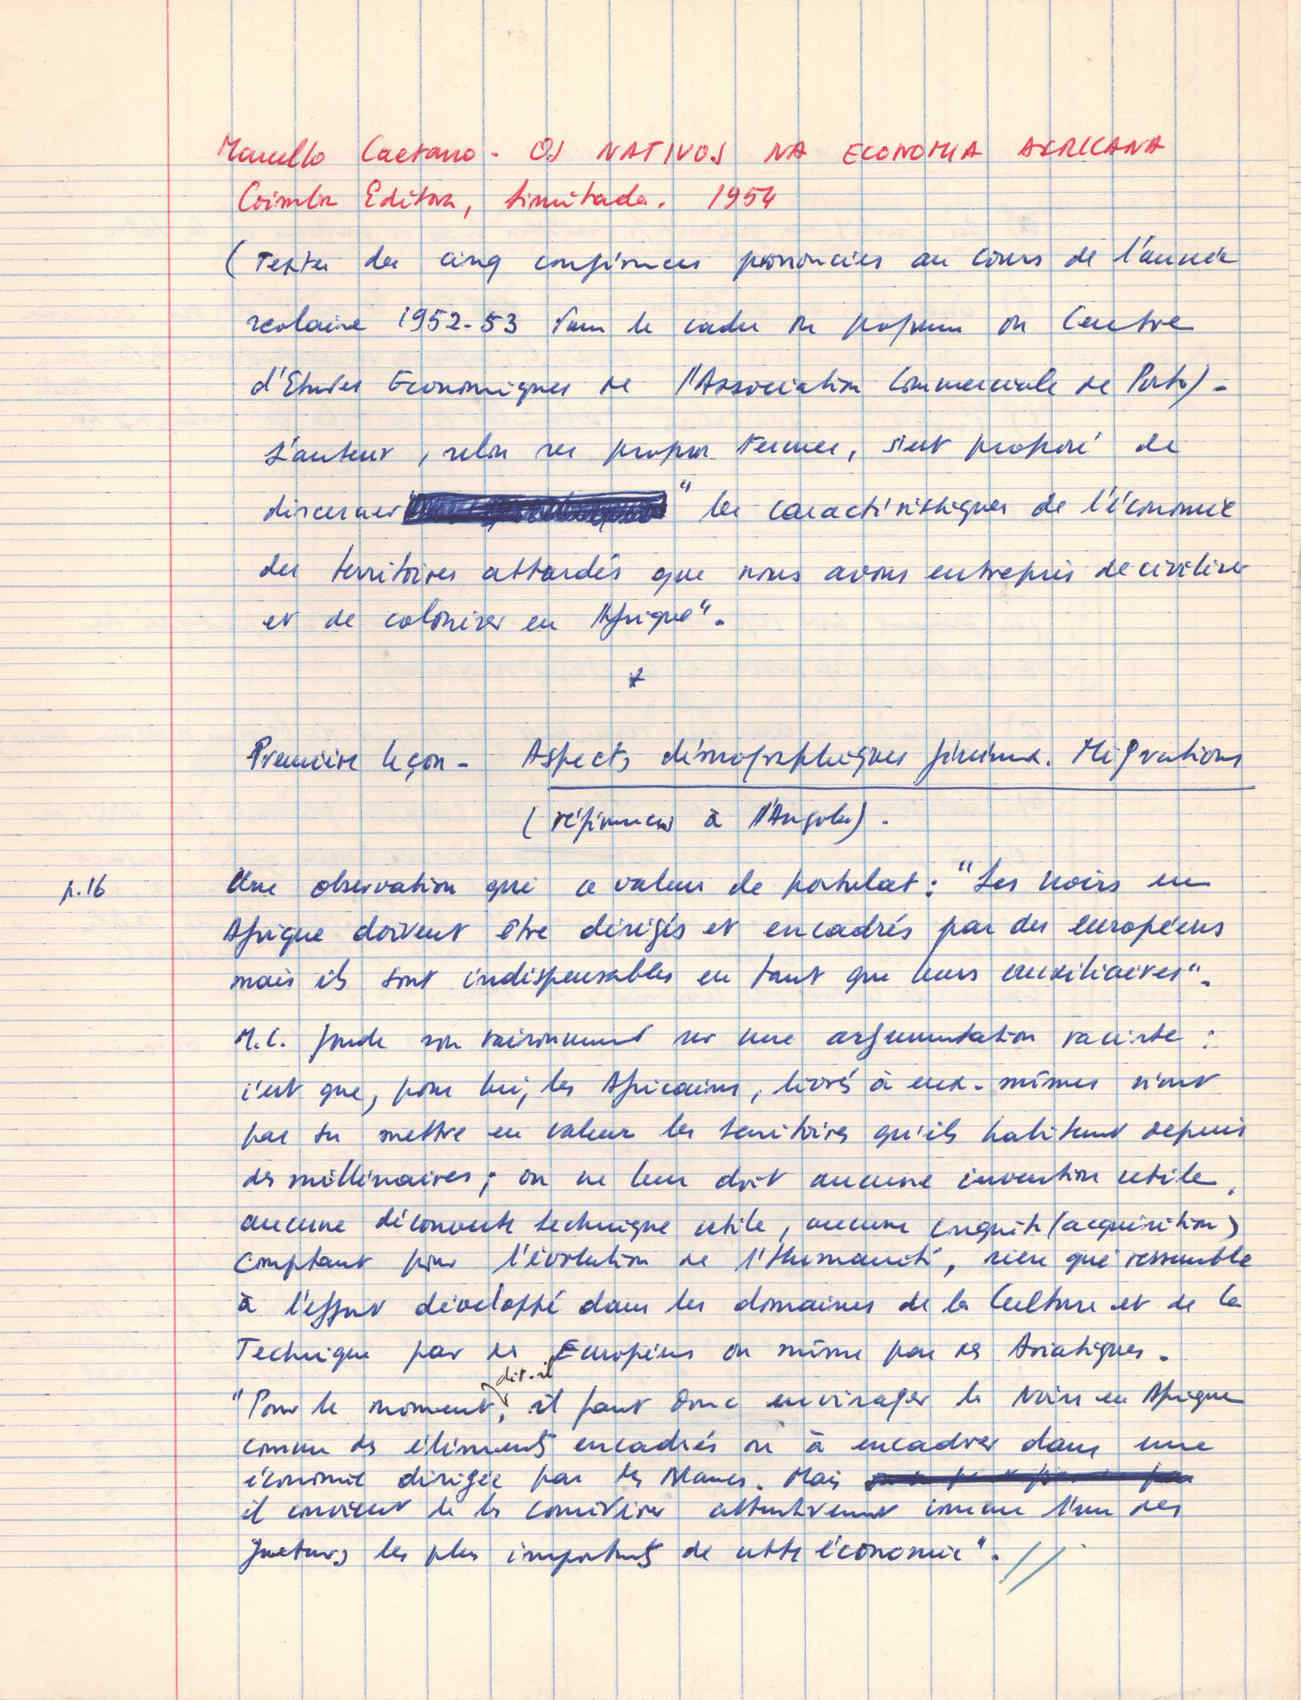 Marcello Caetano - OS NATIVOS NA ECONOMIA AFRICANA
Coimbra Editora, Limitada. 1954
(Textes des cinq conférences prononcées au cours de l'année
scolaire 1952-53 dans le cadre du programme du Centre
d'Etudes Economiques de l'Association Commerciale de Porto) -
L'auteur, selon ses propres termes, s'est proposé de
discerner " les caractéristiques de l'économie
des territoires attardés que nous avons entrepris de civiliser
et de coloniser en Afrique".
*
Première leçon - Aspects démographiques généraux. Migrations
(références à l'Angola).
p.16
Une observation qui a valeur de postulat : "Les noirs en
Afrique doivent être dirigés et encadrés par des européens
mais ils sont indispensables en tant que leurs auxiliaires".
M.C. fonde son raisonnement sur une argumentation raciste :
c'est que, pour lui, les Africains, livrés à eux-mêmes n'ont
pas su mettre en valeur les territoires qu'ils habitent depuis
des millénaires ; on ne leur doit aucune invention utile,
aucune découverte technique utile, aucune conquête (acquisition)
comptant pour l'évolution de l'Humanité, rien qui ressemble
à l'effort développé dans les domaines de la Culture et de la
Technique par des Européens ou même par des Asiatiques.
"Pour le moment, dit-il, il faut donc envisager les Noirs en Afrique
comme des éléments encadrés ou à encadrer dans une
économie dirigée par les Blancs. Mais
il convient de les considérer attentivement comme l'un des
facteurs les plus importants de cette économie". //